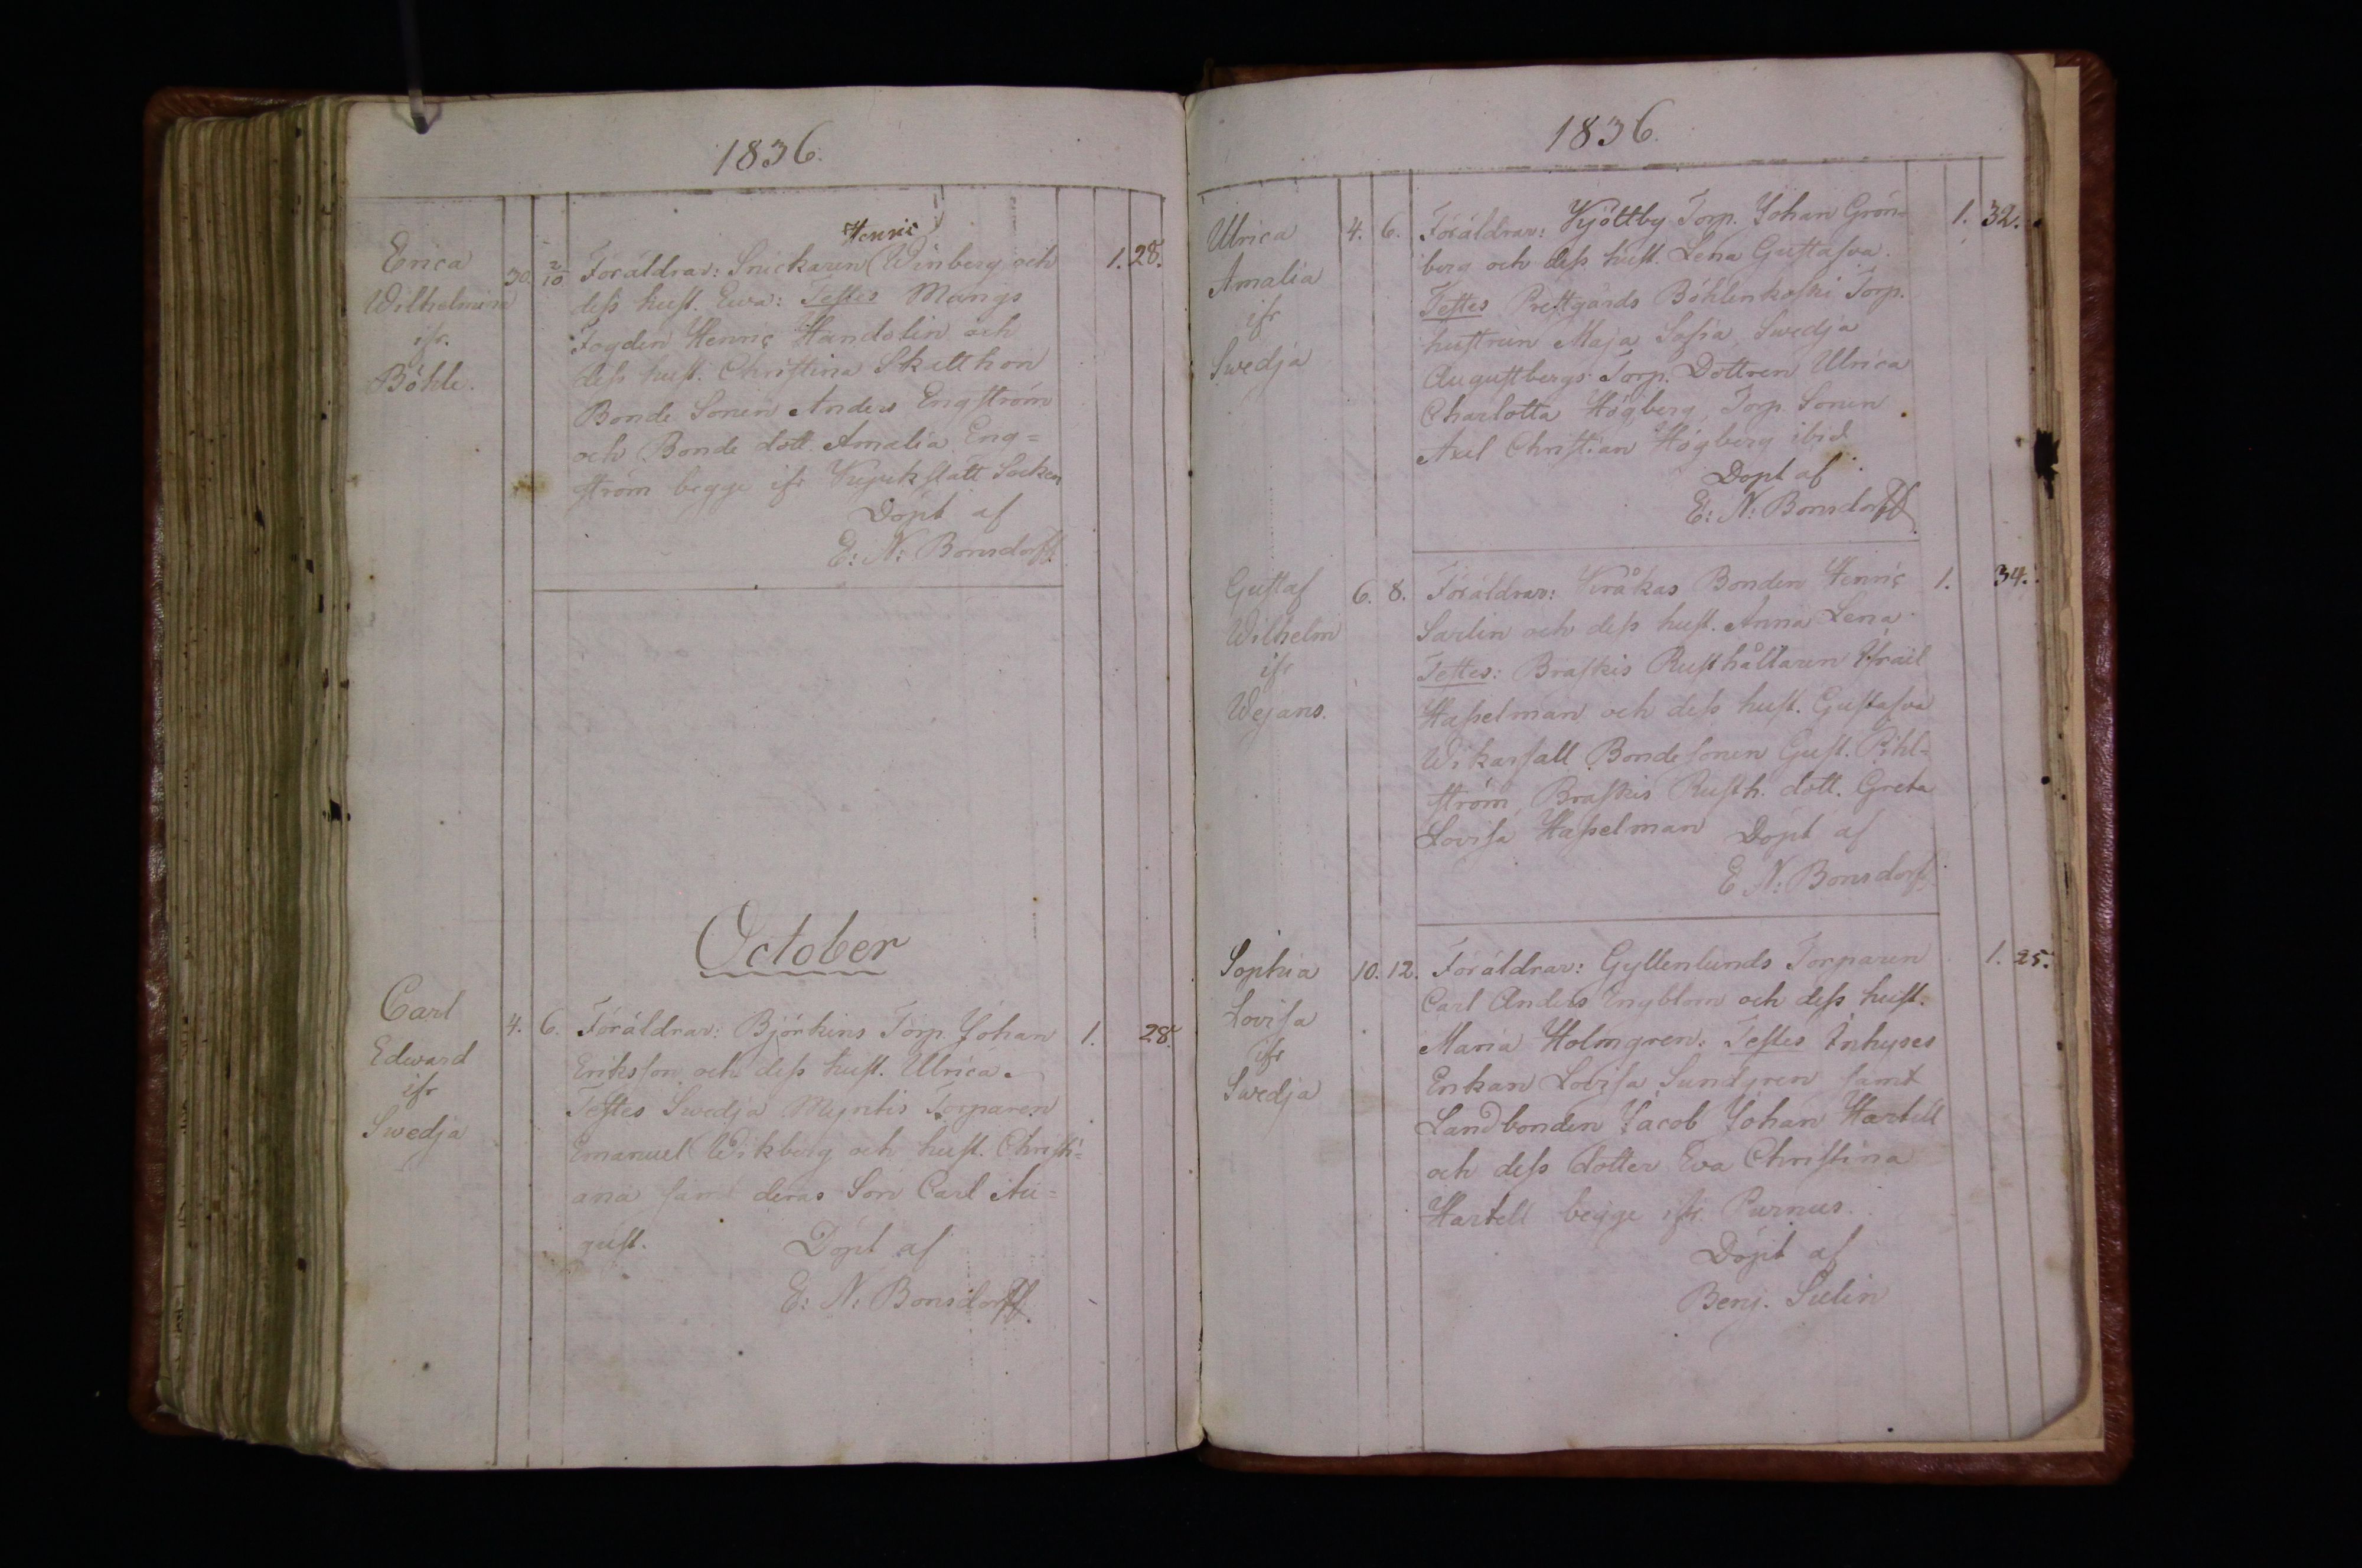 1836.
Henric
Erica 30. 2/10 Föräldrar: Snickaren Winberg och 1. 28.
Wilhelmina dess hust. Ewa: Testes Mangs
ifr. Fogden Henric Handolin och
Böhle. dess hust. Christina Skatthon
Bonde Sonen Anders Engström
och Bonde dott. Amalia Eng=
ström begge ifr Socken
Döpt af
E: N: Bonsdorff.
October
Carl 4. 6. Föräldrar: Björkins Torp. Johan 1. 28.
Edward Eriksson och dess hust. Ulrica.
ifr Testes Swedja Myntis Torparen
Swedja Emanuel Wikberg och hust. Christi=
ana samt deras Son Carl Au=
gust. Döpt af
E: N: Bonsdorff.
1836.
Ulrica 4. 6. Föräldrar: Kjöttby Torp. Johan Grön= 1. 32.
Amalia berg och dess hust. Lena Gustafva.
ifr Testes Prestgårds Böhlenkoski Torp.
Swedja hustrun Maja Sofia, Swedja
Augustbergs Torp. Dottren Ulrica
Charlotta Högberg, Torp. Sonen
Axel Christian Högberg ibid
Döpt af
E: N: Bonsdorff
Gustaf 6. 8. Föräldrar: Kråkas Bonden Henric 1. 34.
Wilhelm Sarlin och dess hust. Anna Lena
ifr Testes: Braskis Rusthållaren Israel
Wejans. Hasselman och dess hust. Gustafva
Wikarsall Bondesonen Gust. Pihl=
ström, Braskis Rusth. dott. Greta
Lovisa Hasselman Döpt af
E N: Bonsdorff
Sophia 10. 12. Föräldrar: Gyllenlunds Torparen 1. 25.
Lovisa Carl Anders Engblom och dess hust.
ifr Maria Holmgren: Testes Inhyses
Swedja Enkan Lovisa Sundgren samt
Landbonden Jacob Johan Hartell
och dess dotter Eva Christina
Hartell begge ifr Purnus.
Döpt af
Benj. Sulin